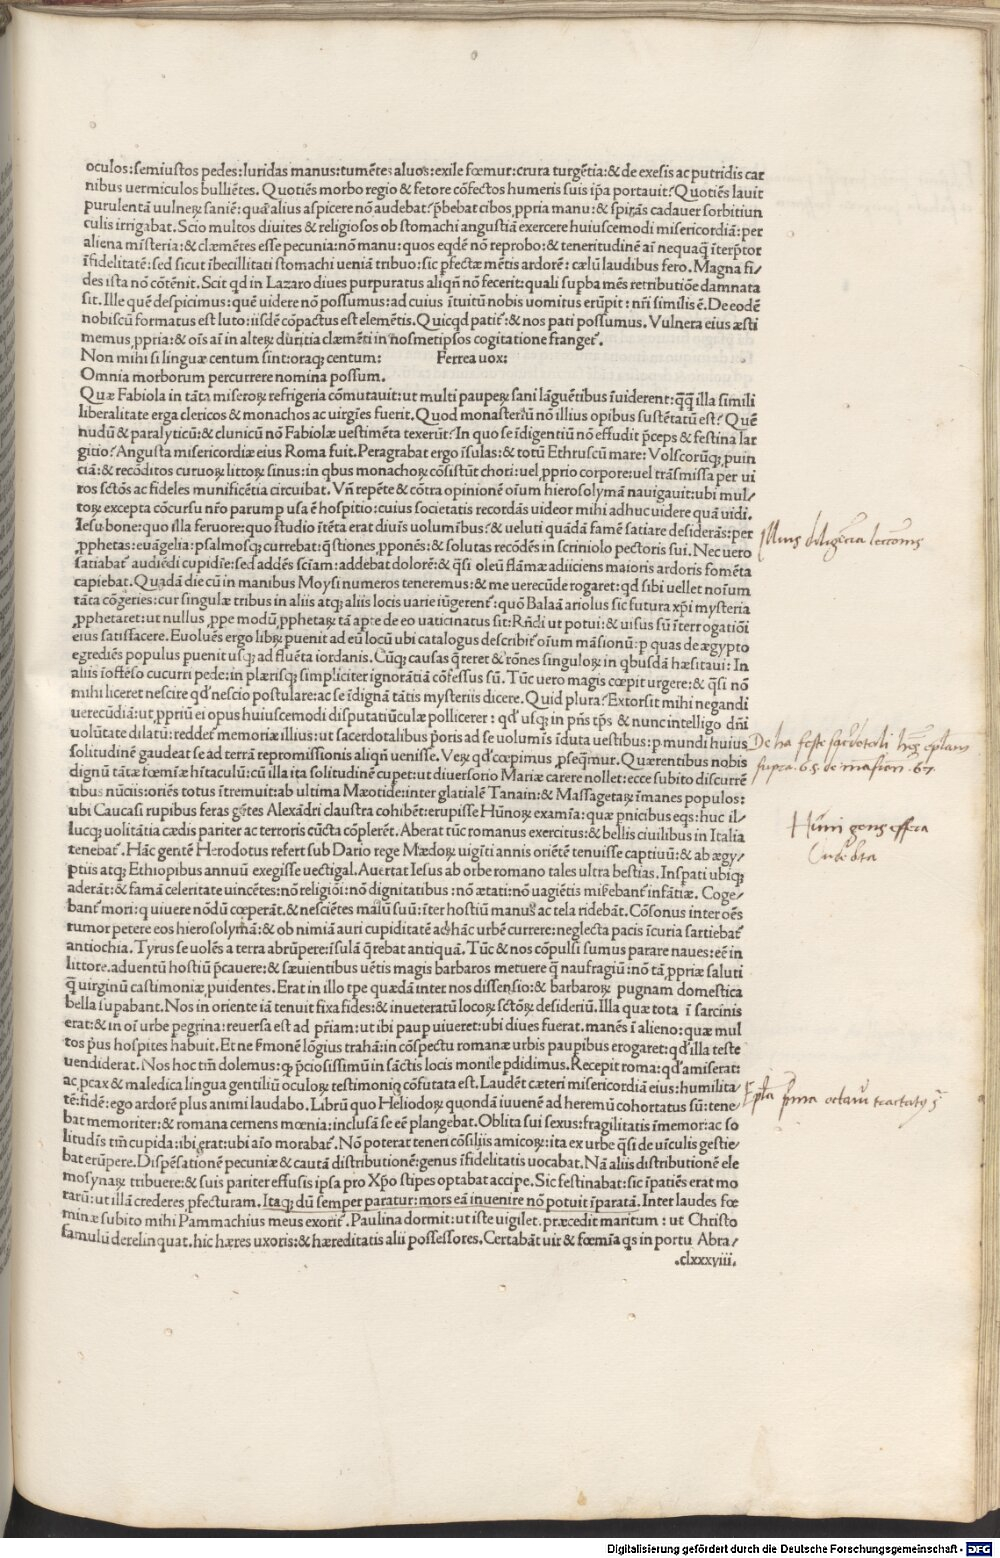 oculos:semiustos pedes:luridas manus:tumētes aluos:exile fœmur:crura turgētia:& de exesis ac putridis car
nibus uermiculos bulliētes. Quotiēs morbo regio & fetore cōfectos humeris suis ip̄a portauit? Quotiēs lauit
purulentā uulneꝝ saniē: quā alius aspicere nō audebat? p̄bebat cibos ꝓpria manu: & spirās cadauer sorbitiun
culis irrigabat. Scio multos diuites & religiosos ob stomachi angustiā exercere huiuscemodi misericordiā: per
aliena mīsteria: & clæmētes esse pecunia: nō manu: quos eqdē nō reprobo: & teneritudinē aī nequaq̄ īterp̄tor
īfidelitatē: sed sicut ībecillitati stomachi ueniā tribuo: sic ꝑfectæ mētis ardorē: cælū laudibus fero. Magna fi/
des ista nō cōtēnit. Scit qd in Lazaro diues purpuratus aliqn̄ nō fecerit: quali supba mēs retributiōe damnata
sit. Ille quē despicimus: quē uidere nō possumus: ad cuius ītuitū nobis uomitus erūpit: nr̄i similis ē. De eodē
nobiscū formatus est luto: iisdē cōpactus est elemētis. Quicqd patit᷑: & nos pati possumus. Vulnera eius æsti
memus ꝓpria: & oīs aī in alteꝝ duritia clæmēti in nosmetipsos cogitatione franget᷑.
Non mihi si linguæ centum sint: oraq; centum: Ferrea uox:
Omnia morborum percurrere nomina possum.
Quæ Fabiola in tāta miseroꝝ refrigeria cōmutauit: ut multi paupeꝝ sani lāguētibus īuiderent: q̄q̄ illa simili
liberalitate erga clericos & monachos ac uirgīes fuerit. Quod monasteriū nō illius opibus sustētatū est? Quē
nudū & paralyticū: & clunicū nō Fabiolæ uestimēta texerūt? In quo se īdigentiū nō effudit p̄ceps & festina lar
gitio? Angusta misericordiæ eius Roma fuit. Peragrabat ergo īsulas: & totū Ethruscū mare: Volscorūq; ꝓuin
ciā: & recōditos curuoꝝ littoꝝ sinus: in qbus monachoꝝ cōsistūt chori: uel ꝓprio corpore: uel trāsmissa per ui
ros sctōs ac fideles munificētia circuibat. Vn̄ repēte & cōtra opinionē oīum hierosolymā nauigauit: ubi mul/
toꝝ excepta cōcursu nr̄o parum p usa ē hospitio: cuius societatis recordās uideor mihi adhuc uidere quā uidi.
Iesu bone: quo illa feruore: quo studio ītēta erat diuīs uolumībus? & ueluti quādā famē satiare desiderās: per
ꝓphetas: euāgelia: psalmosq; currebat: q̄stiones ꝓponēs: & solutas recōdēs in scriniolo pectoris sui. Nec uero
satiabat᷑ audiēdi cupidīe: sed addēs sciam: addebat dolorē: & q̄si oleū flāmæ adiiciens maioris ardoris fomēta
capiebat. Quadā die cū in manibus Moysi numeros teneremus: & me uerecūde rogaret: qd sibi uellet noīum
tāta cōgeries: cur singulæ tribus in aliis atq; aliis locis uarie iūgerent᷑: quō Balaā ariolus sic futura xp̄i mysteria
ꝓphetaret: ut nullus ꝓpe modū ꝓphetaꝝ tā apte de eo uaticinatus sit: Rn̄di ut potui: & uisus sū īterrogatiōi
eius satisfacere. Euoluēs ergo libꝝ puenit ad eū locū ubi catalogus describit᷑ oīum māsionū: p quas de ægypto
egrediēs populus puenit usq; ad fluēta iordanis. Cūq; causas q̄reret & rōnes singuloꝝ in qbusdā hæsitaui: In
aliis īoffēso cucurri pede: in plærisq; simpliciter ignorātiā cōfessus sū. Tūc uero magis cœpit urgere: & q̄si nō
mihi liceret nescire qd᷑ nescio postulare: ac se īdignā tātis mysteriis dicere. Quid plura? Extorsit mihi negandi
uerecūdiā: ut ꝓpriū ei opus huiuscemodi disputatiūculæ pollicerer: qd᷑ usq; in pn̄s tp̄s & nunc intelligo dn̄i
uolūtate dilatū: reddet᷑ memoriæ illius: ut sacerdotalibus p̄oris ad se uolumīs īduta uestibus: p mundi huius
solitudinē gaudeat se ad terrā repromissionis aliqn̄ uenisse. Veꝝ qd᷑ cœpimus ꝓseq̄mur. Quærentibus nobis
dignū tātæ fœmīæ hītaculū: cū illa ita solitudinē cupet: ut diuersorio Mariæ carere nollet: ecce subito discurrē
tibus nūciis: oriēs totus ītremuit: ab ultima Mæotide: inter glatialē Tanain: & Massagetaꝝ īmanes populos:
ubi Caucasi rupibus feras gētes Alexādri claustra cohibēt: erupisse Hūnoꝝ examīa: quæ pnicibus eqs: huc il/
lucq; uolitātia cædis pariter ac terroris cūcta cōplerēt. Aberat tūc romanus exercitus: & bellis ciuilibus in Italia
tenebat᷑. Hāc gentē Herodotus refert sub Dario rege Mædoꝝ uigīti annis oriētē tenuisse captiuū: & ab ægy/
ptiis atq; Ethiopibus annuū exegisse uectigal. Auertat Iesus ab orbe romano tales ultra bestias. Insperati ubiq;
aderāt: & famā celeritate uincētes: nō religiōi: nō dignitatibus: nō ætati: nō uagiētis misebant᷑ infātiæ. Coge/
bant᷑ mori: q uiuere nōdū cœperāt. & nesciētes malū suū: īter hostiū manus ac tela ridebāt. Cōsonus inter oēs
rumor petere eos hierosolymā: & ob nimiā auri cupiditatē ad hāc urbē currere: neglecta pacis īcuria sartiebat᷑
antiochia. Tyrus se uolēs a terra abrūpere: īsulā q̄rebat antiquā. Tūc & nos cōpulsi sumus parare naues: eē in
littore. aduentū hostiū p̄cauere: & sæuientibus uētis magis barbaros metuere q̄ naufragiū: nō tā ꝓpriæ saluti
q̄ uirginū castimoniæ ꝓuidentes. Erat in illo tpe quædā inter nos dissensio: & barbaroꝝ pugnam domestica
bella supabant. Nos in oriente iā tenuit fixa fides: & inueteratū locoꝝ sctōꝝ desideriū. Illa quæ tota ī sarcinis
erat: & in oī urbe pegrina: reuersa est ad pr̄iam: ut ibi paup uiueret: ubi diues fuerat. manēs ī alieno: quæ mul
tos p̄us hospites habuit. Et ne s̄monē lōgius trahā: in cōspectu romanæ urbis paupibus erogaret: qd᷑ illa teste
uendiderat. Nos hoc tm̄ dolemus: q p̄ciosissimū in sāctis locis monile pdidimus. Recepit roma: qd᷑ amiserat:
ac ꝓcax & maledica lingua gentiliū oculoꝝ testimoniq cōfutata est. Laudēt cæteri misericordiā eius: humilita
tē: fidē: ego ardorē plus animi laudabo. Librū quo Heliodoꝝ quondā iuuenē ad heremū cohortatus sū: tene/
bat memoriter: & romana cernens mœnia: inclusā se eē plangebat. Oblita sui sexus: fragilitatis īmemor: ac so
litudīs tm̄ cupida: ibi erat: ubi aīo morabat᷑. Nō poterat teneri cōsiliis amicoꝝ: ita ex urbe q̄si de uīculis gestie/
bat erūpere. Dispēsationē pecuniæ & cautā distributionē: genus īfidelitatis uocabat. Nā aliis distributionē ele
mosynaꝝ tribuere: & suis pariter effusis ipsa pro Xp̄o stipes optabat accipe. Sic festinabat: sic īpatiēs erat mo
rarū: ut illā crederes ꝓfecturam. Itaq; dū semper paratur: mors eā inuenire nō potuit īparatā. Inter laudes fœ
minæ subito mihi Pammachius meus exorit᷑. Paulina dormit: ut iste uigilet. præcedit maritum: ut Christo
famulū derelinquat. hic hæres uxoris: & hæreditatis alii possessores. Certabāt uir & fœmīa qs in portu Abra/
.clxxxviii.
Illius diligētia lectionis
De hac ueste sacerdotali
supra 65 de mansion. 67
Hūni gens effera
Epl̄a prima octaui tractatus
Digitalisierung gefördert durch die Deutsche Forschungsgemeinschaft - DFG